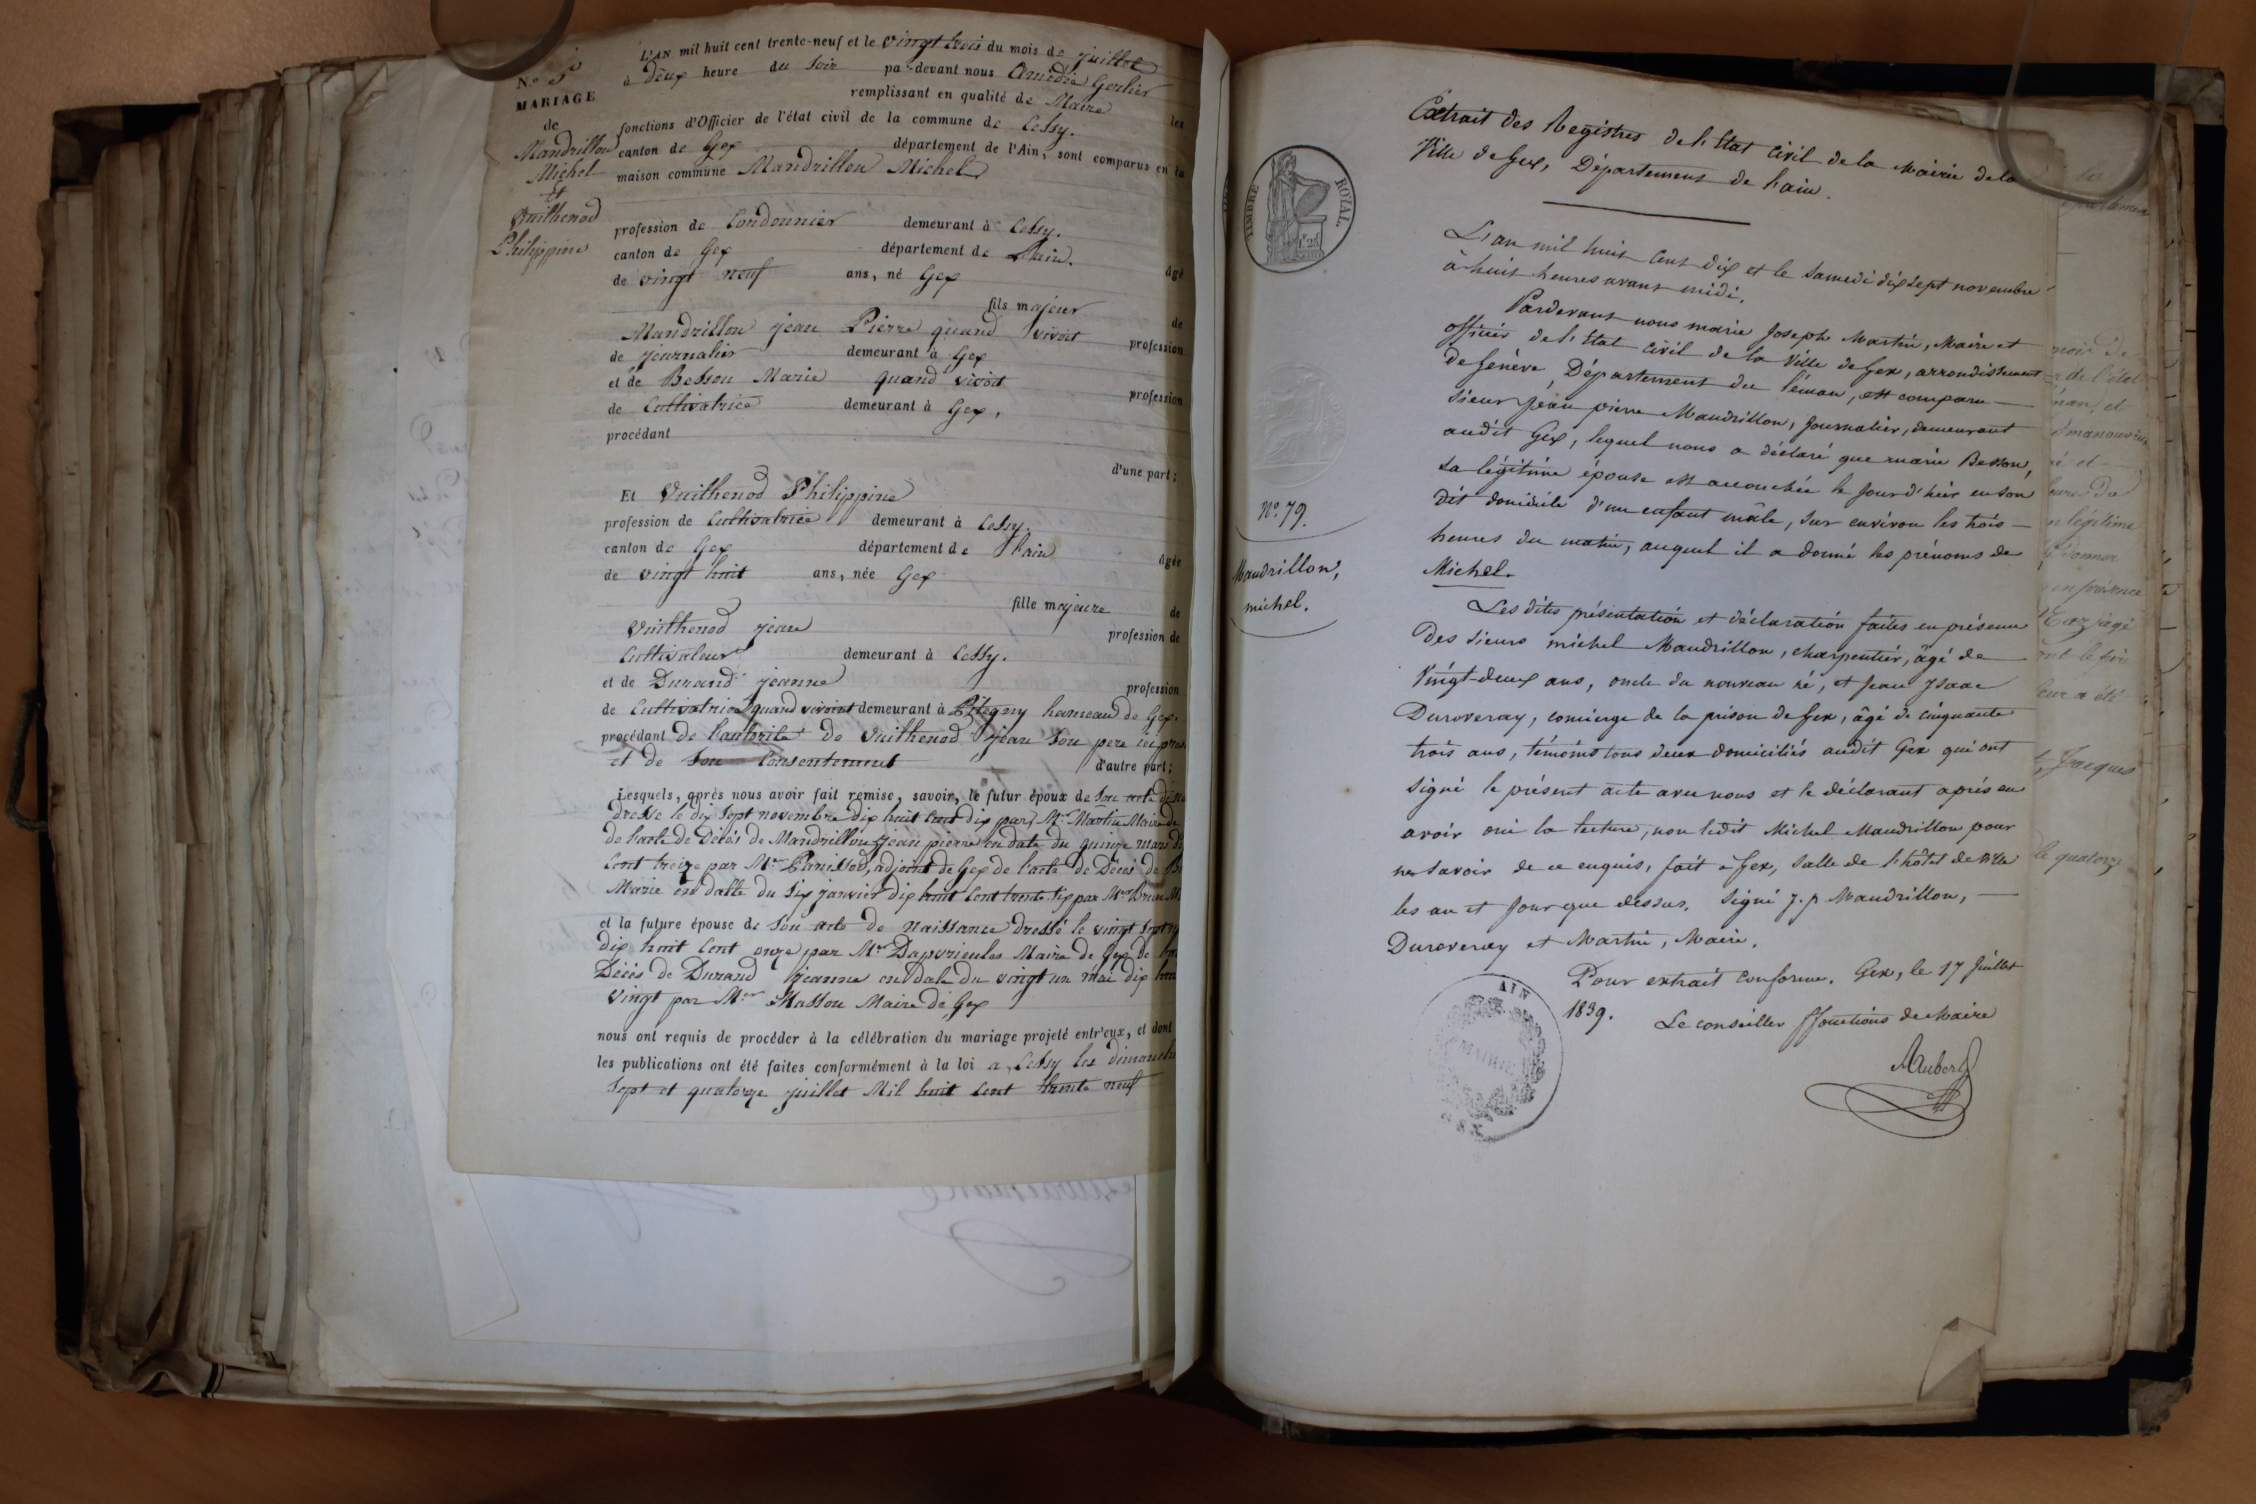 N.º 5
MARIAGE
de
Mandrillon
Michel
Et
Vuilhenod
Philippine
L'AN mil huit cent trente-neuf et le vingt trois du mois de juillet
à deux heure du soir pa-devant nous Amédée Gerlier
remplissant en qualité de Maire les
fonctions d'Officier de l'état civil de la commune de Cessy.
canton de Gex département de l'Ain, sont comparus en la
maison commune Mandrillon Michel
profession de Cordonnier demeurant à Cessy.
canton de Gex département de l'ain. âgé
de vingt neuf ans, né Gex
fils majeur de
Mandrillon jean Pierre quand vivoit profession
de journalier demeurant à Gex
et de Besson Marie quand vivoit profession
de Cultivatrice demeurant à Gex,
procédant
d'une part;
Et Vuilhenod Philippine
profession de Cultivatrice demeurant à Cessy.
canton de Gex département de l'ain âgée
de vingt huit ans, née Gex
fille majeure de
Vuilhenod jean profession de
Cultivateur demeurant à Cessy.
et de Durand jeanne profession
de Cultivatrice quand vivoit demeurant à Pitegny hameau de Gex.
procédant de l'autorité de Vuilhenod jean son pere ici
et de son Consentement d'autre part;
Lesquels, après nous avoir fait remise, savoir, le futur époux de son acte de
dressé le dix sept novembre dix huit cent dix par Mr Martin Maire de
de l'acte de Décés de Mandrillon jean pierre en date du quinze mars
Cent treize par Mr Panissod, adjoint de Gex de l'acte de Décés de
Marie en datte du six janvier dix huit Cent trente six par Mr
et la future épouse de son acte de naissance dressé le vingt sept
dix huit Cent onze par Mr Maire de Gex de
Décés de Durand jeanne en date du vingt un mai dix
vingt par Mr Masson Maire de Gex
nous ont requis de procéder à la célébration du mariage projeté entr'eux, et dont
les publications ont été faites conformément à la loi a Cessy les dimanche
Sept et quatorze juillet Mil huit Cent trente neuf
TIMBRE ROYAL
Nº. 79.
Mandrillon,
michel.
Extrait des Registres de l'Etat Civil de la Mairie de la
Ville de Gex, Département de l'ain.
L'an mil huit Cent dix et le Samedi dix sept novembre
à huit heures avant midi.
Pardevant nous marie Joseph Martin, Maire et
officier de l'Etat civil de la Ville de Gex, arrondissement
de Genève, Département du Léman, est comparu
sieur Jean pierre Mandrillon, Journalier, demeurant
audit Gex, lequel nous a déclaré que marie Besson,
sa légitime épouse est accouchée le jour d'hier en son
dit domicile d'un enfant mâle, sur environ les trois
heures du matin, auquel il a donné les prénoms de
Michel.
Les dites présentation et déclaration faites en présence
des sieurs michel Mandrillon, charpentier, âgé de
Vingt-deux ans, oncle du nouveau né, et Jean Isaac
Duroveray, concierge de la prison de Gex, âgé de Cinquante
trois ans, témoins tous deux domiciliés audit Gex qui ont
signé le présent acte avec nous et le déclarant après en
avoir oui la lecture, non ledit Michel Mandrillon pour
ne savoir de ce enquis, fait à Gex, salle de l'hôtel de Ville
les an et jour que dessus. Signé J. p Mandrillon,
Duroveray et Martin, Maire.
Pour extrait conforme. Gex, le 17 Juillet
1839.
Le conseiller ffonctions de Maire
AIN
MAIRIE
GEX
de l'état
légitime
donner
en présence
leur a été
Jacques
le quatorze